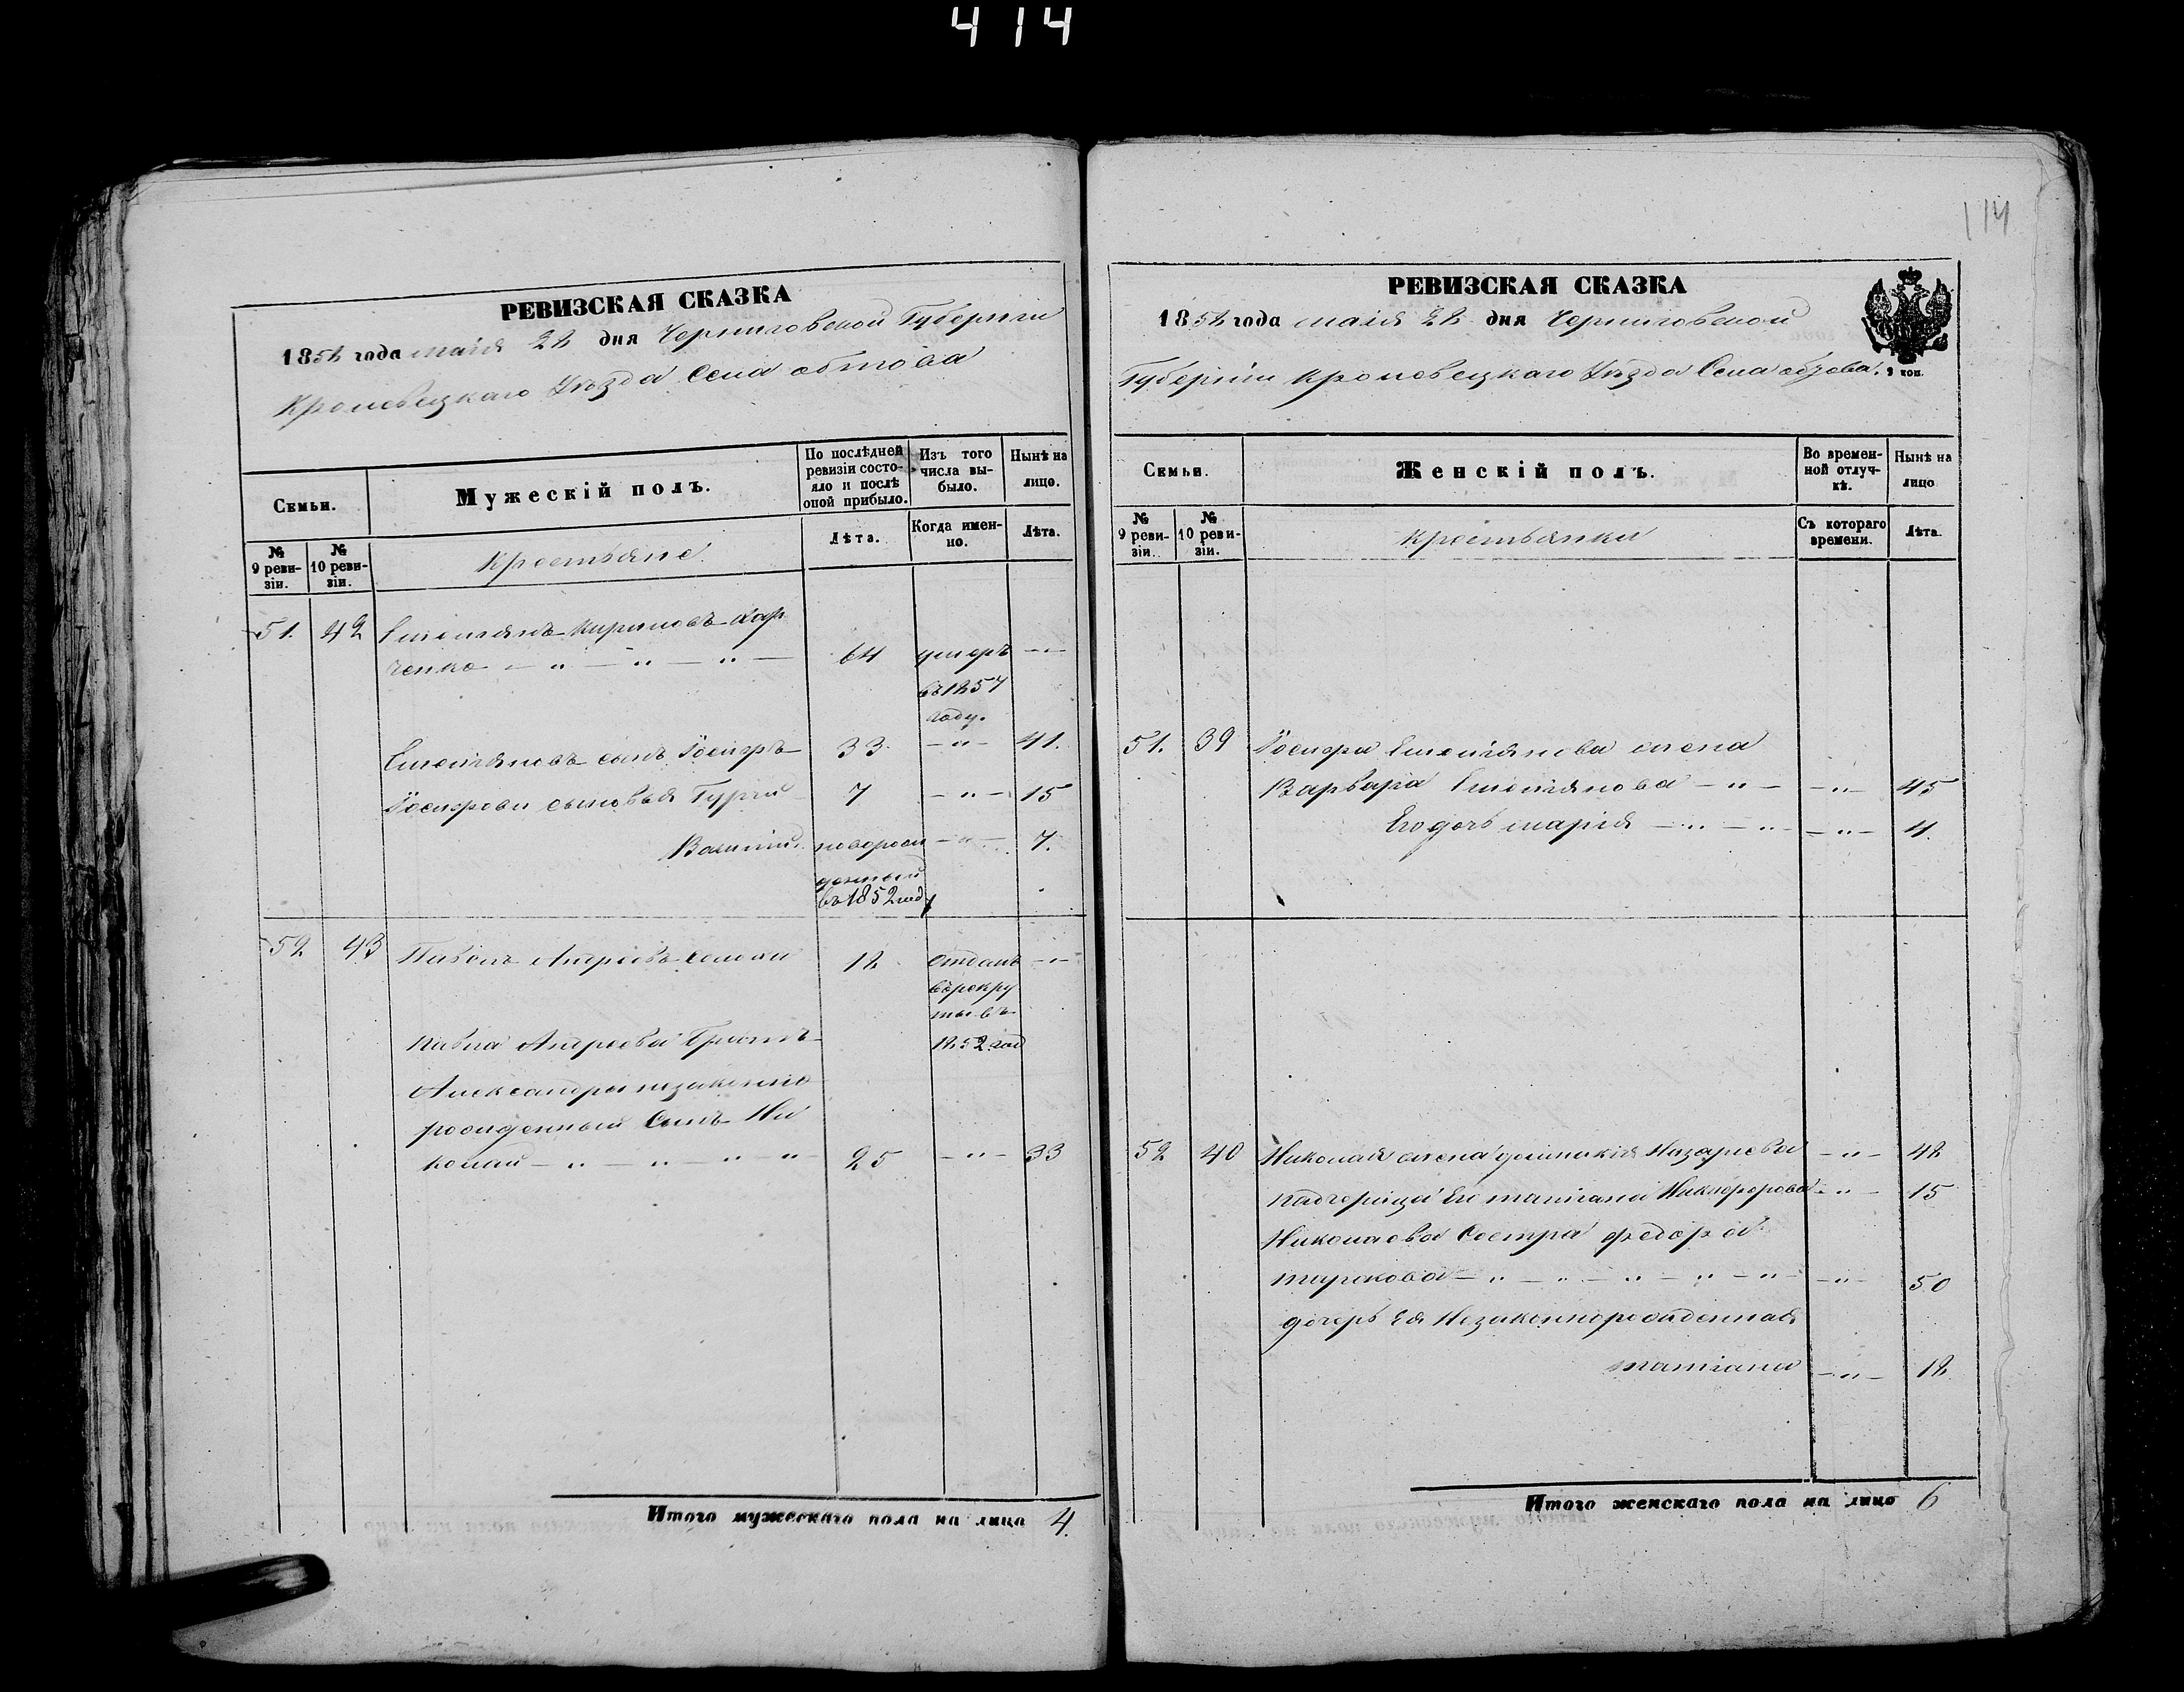 414
РЕВИЗСКАЯ СКАЗКА
1858 года маія 28 дня Черниговской Губерніи
Кролевецкаго Уѣзда Села обтова
Семьи.
Мужескій полъ.
По послѣдней ревизіи состояло и послѣ оной прибыло.
Изъ того числа выбыло.
Нынѣ на лицо.
№ 9 ревизіи.
№ 10 ревизіи.
Крестьяне
Лѣта.
Когда именно.
Лѣта.
51. 42 Емельянъ Кириловъ Хар
ченко — „ — „ — „ — 64 умеръ — „ —
въ 1857
году.
Емельяновъ сынъ Іосифъ 33 — „ — 41.
Іосифови сыновья Гурій 7 — „ — 15
Василій новорож — „ — 7.
денный
въ 1852 году
52 43 Павелъ Андреевъ 18 отданъ — „ —
въ рекру
ты въ
Павла Андреева братъ 1852 год
Александры незаконно
рожденный Сынъ Ни
колай — „ — „ — „ — „ 25 — „ — 33
Итого мужескаго пола на лицо 4.
114
РЕВИЗСКАЯ СКАЗКА
1858 года маія 28 дня Черниговской
Губерніи Кролевецкаго Уѣзда Села обтова.
Семьи.
Женскій полъ.
Во временной отлучкѣ.
Нынѣ на лицо
№ 9 ревизіи.
№ 10 ревизіи.
Крестьянки
Съ котораго времени.
Лѣта.
51. 39 Іосифа Емельянова жена
Варвара Емельянова — „ — — „ — 45
Его дочь марія — „ — „ — „ — 4.
52 40 Николая жена Назарьева — „ — 48
падчерица Его татіана Никифорова — „ — 15
Николаева Сестра федора
— „ — „ — „ — „ — „ — „ — 50
дочерь Ея Незаконнорожденная
татіана — „ — 18
Итого женскаго пола на лицо 6